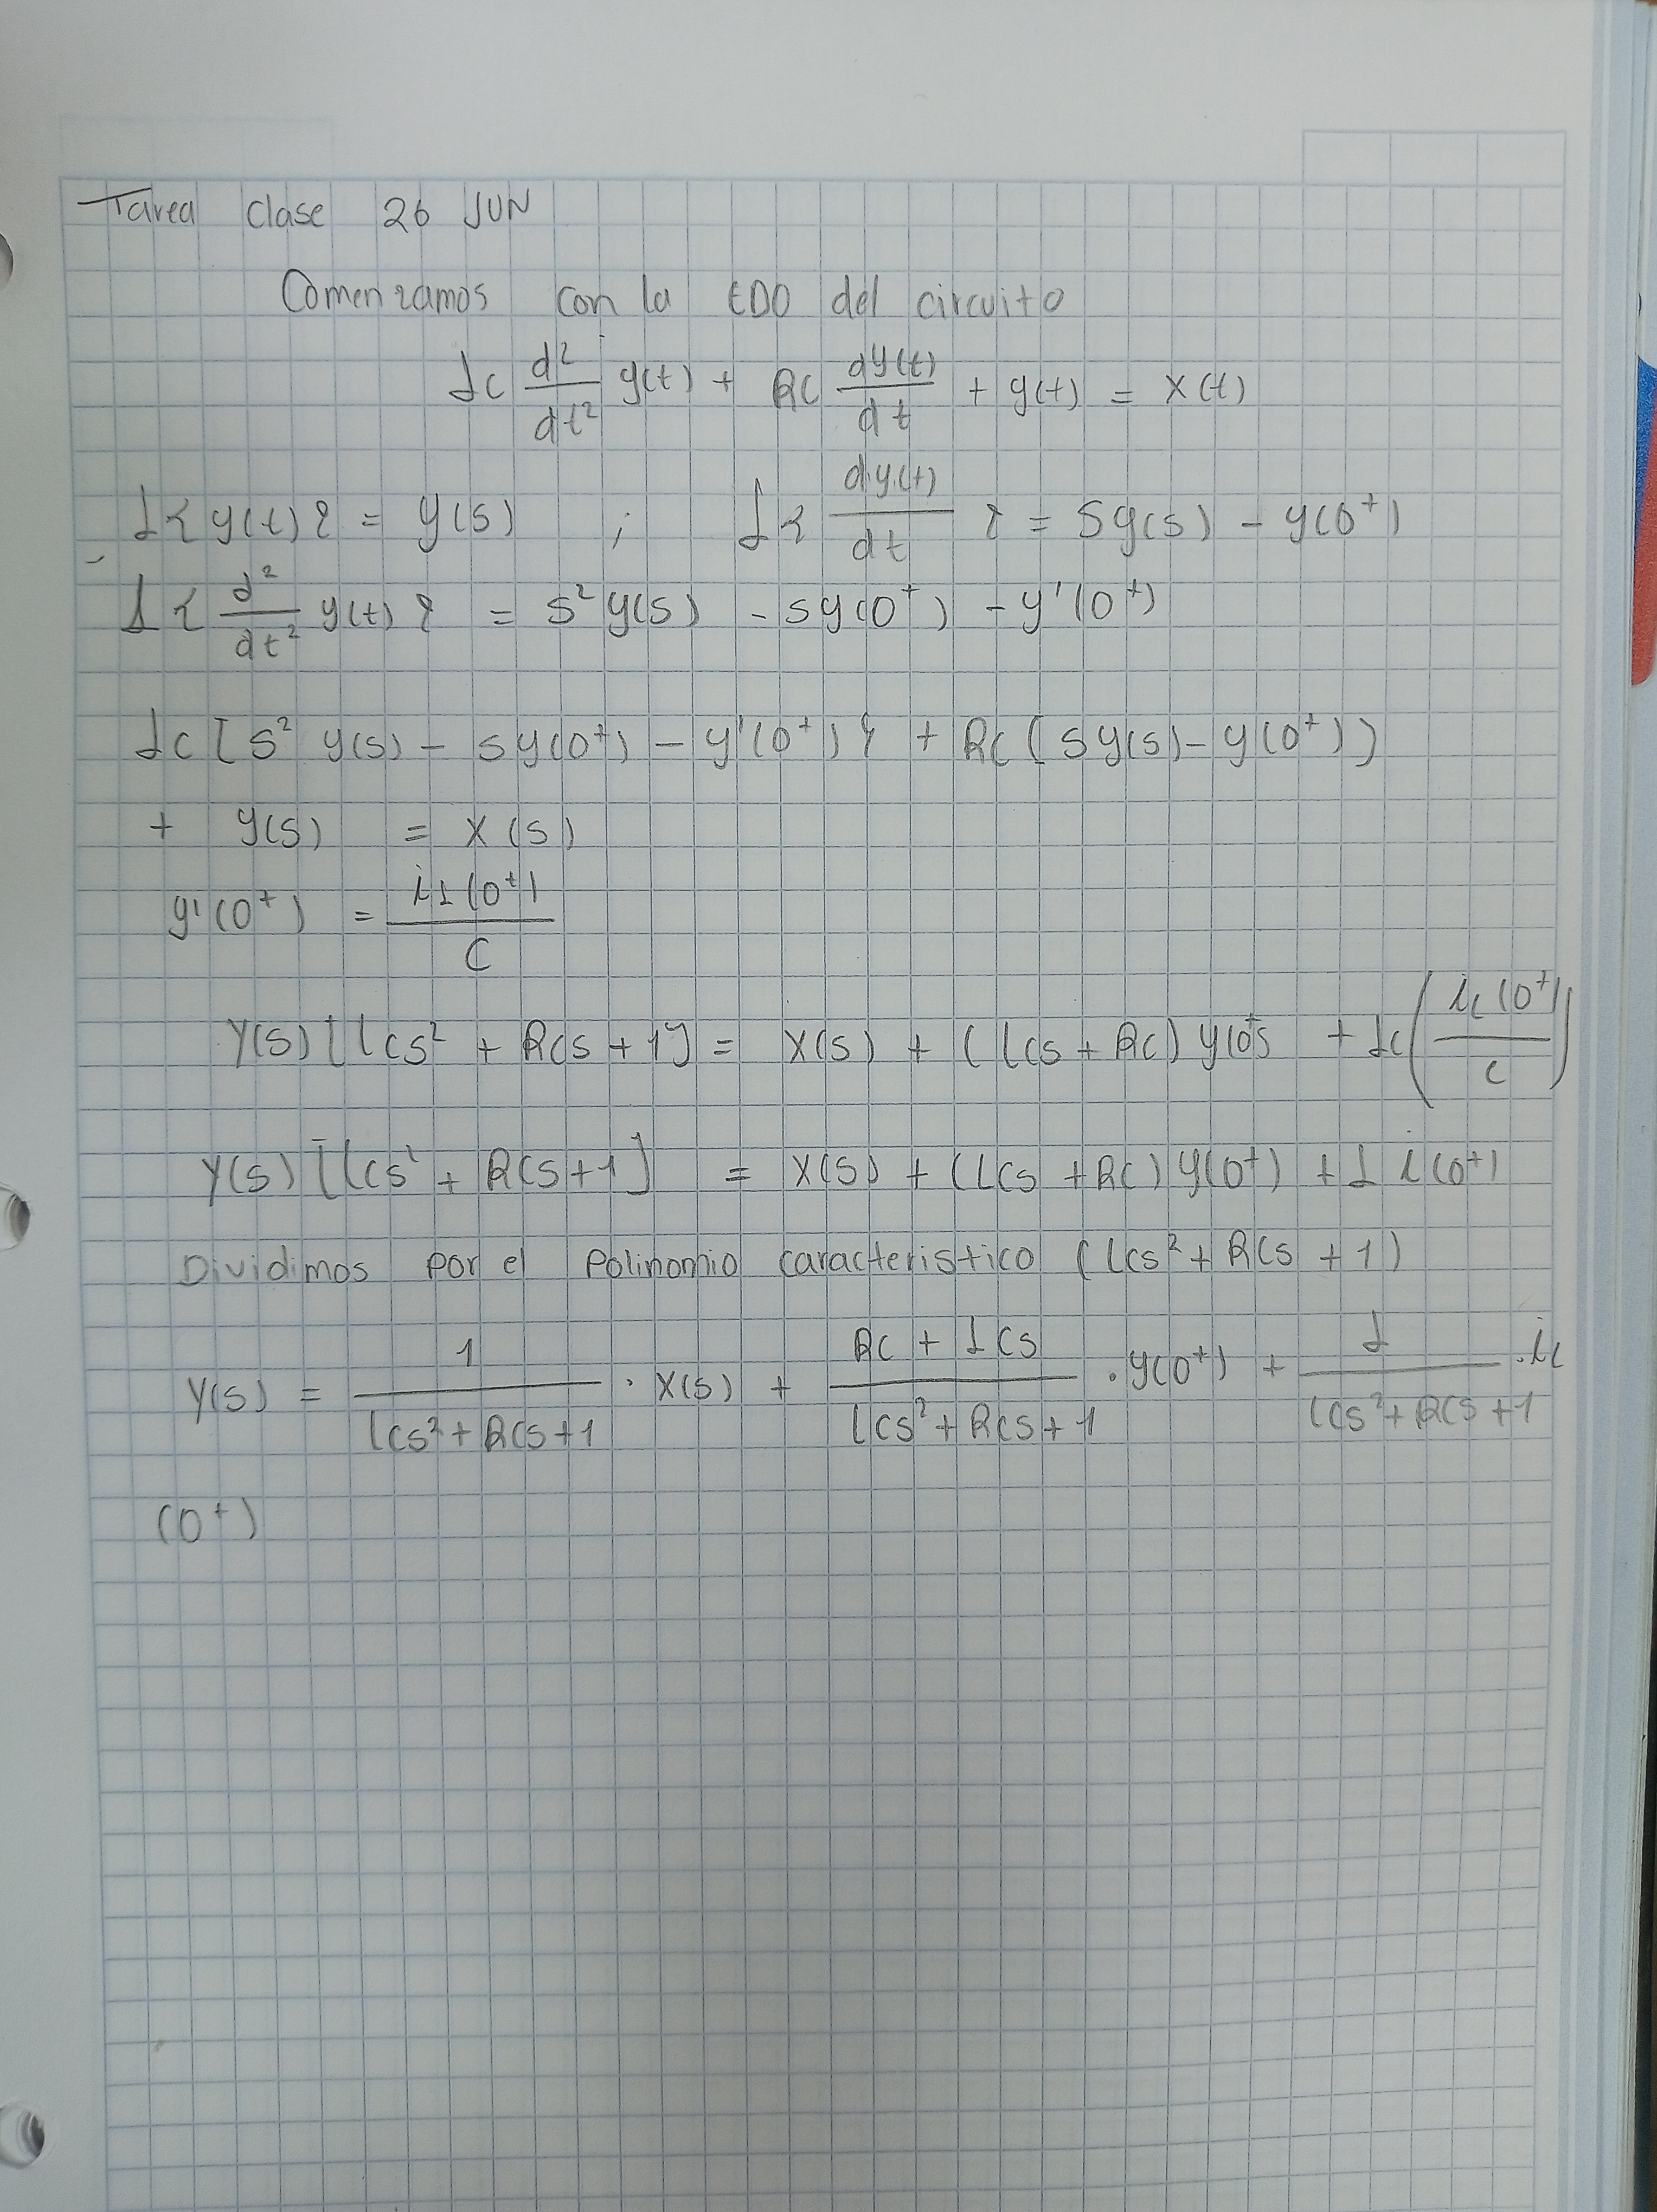 Tarea Clase 26 JUN
Comenzamos con la EDO del circuito
LC d²/dt² y(t) + RC dy(t)/dt + y(t) = x(t)
L{y(t)} = y(s) ; L{dy(t)/dt} = Sy(s) - y(0⁺)
L{d²/dt² y(t)} = s²y(s) - sy(0⁺) - y'(0⁺)
LC[s² y(s) - sy(0⁺) - y'(0⁺)} + RC(sy(s) - y(0⁺))
+ y(s) = x(s)
y'(0⁺) = iL(0⁺)/C
Y(s)[LCs² + RCs + 1] = X(s) + (LCs + RC) y(0⁺) + LC(iL(0⁺)/C)
Y(s)[LCs² + RCs + 1] = X(s) + (LCs + RC) y(0⁺) + L i(0⁺)
Dividimos por el polinomio caracteristico (LCs² + RCs + 1)
Y(s) = 1/(LCs² + RCs + 1) · X(s) + (RC + LCs)/(LCs² + RCs + 1) · y(0⁺) + L/(LCs² + RCs + 1) · iL
(0⁺)